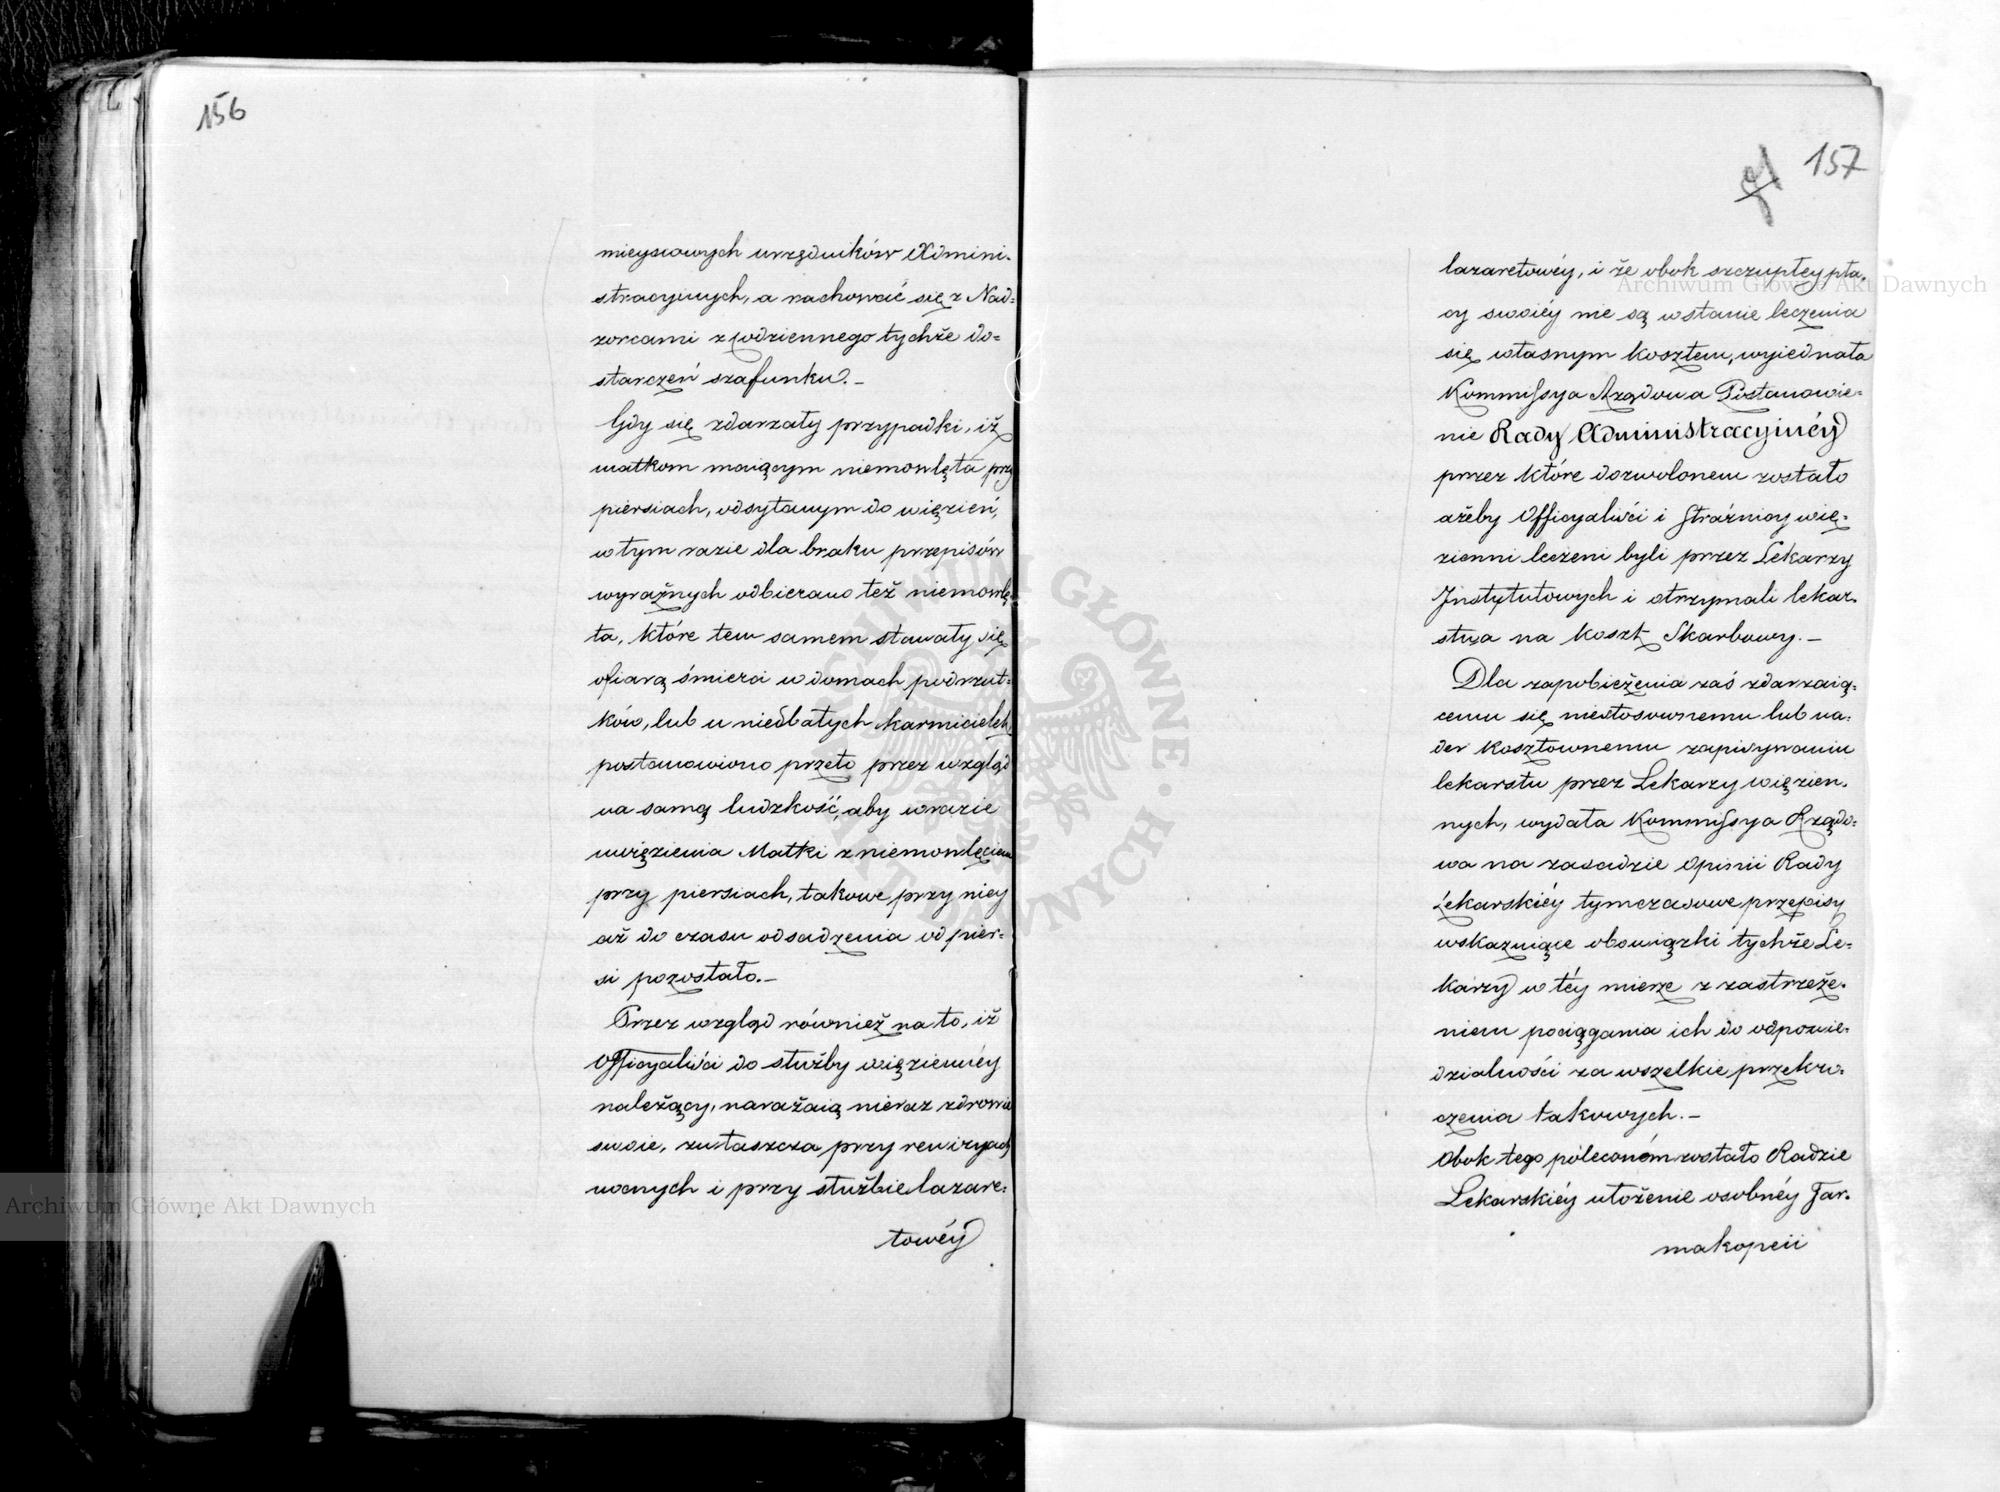 156
mieyscowych urzędników Admini-
stracyinych, a rachować się z Nad-
zorcami z codziennego tychże do-
starczeń szafunku.-
Gdy się zdarzały przypadki, iż
matkom maiącym niemowlęta przy
piersiach, odsyłanym do więzień,
w tym razie dla braku przepisów
wyraźnych odbierano też niemowlę-
ta, które tem samem stawały się
ofiarą śmierci w domach podrzut-
ków, lub u niedbałych karmicielek,
postanowiono przeto przez wzgląd
na samą ludzkość, aby w razie
uwięzienia Matki z niemowlęciem
przy piersiach, takowe przy niey
aż do czasu odsadzenia od pier-
si pozostało.-
Przez wzgląd również na to, iż
Officyaliści do służby więziennéy
należący, narażaią nieraz zdrowie
swoie, zwłaszcza przy rewizyach
nocnych i przy służbie lazare-
towéy
157
lazaretowéy, i że obok szczupłey pła-
cy swoiéy nie są w stanie leczenia
się własnym kosztem, wyiednała
Kommissya Rządowa Postanowie-
nie Rady Administracyinéy
przez które dozwolonem zostało
ażeby Officyaliści i Strażnicy wię-
zienni leczeni byli przez Lekarzy
Instytutowych i otrzymali lekar-
stwa na koszt Skarbowy.-
Dla zapobieżenia zaś zdarzaią-
cemu się niestosownemu lub na-
der kosztownemu zapisywaniu
lekarstw przez Lekarzy więzien-
nych, wydała Kommissya Rządo-
wa na zasadzie opinii Rady
Lekarskiéy tymczasowe przepisy
wskazuiące obowiązki tychże Le-
karzy w téy mierze z zastrzeże-
niem pociągania ich do odpowie-
dzialności za wszelkie przekro-
czenia takowych.-
Obok tego poleconém zostało Radzie
Lekarskiéy ułożenie osobnéy Far-
makopeii
Archiwum Główne Akt Dawnych
Archiwum Główne Akt Dawnych
ARCHIWUM GŁÓWNE AKT DAWNYCH